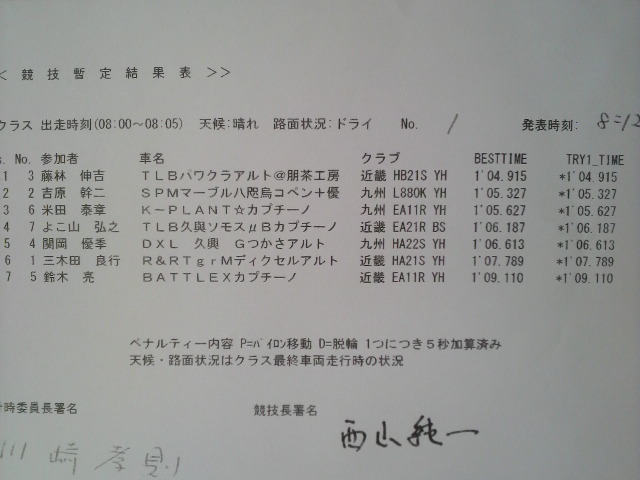 < 競 技 暫 定 結 果 表 >>
クラス 出走時刻(08:00～08:05) 天候:晴れ 路面状況:ドライ No. 1 発表時刻: 8=12
s. No. 参加者 車名 クラブ BESTTIME TRY1_TIME
1 3 藤林 伸吉 TLBパワクラアルト@朋茶工房 近畿 HB21S YH 1'04.915 *1'04.915
2 2 吉原 幹二 SPMマーブル八咫烏コペン+優 九州 L880K YH 1'05.327 *1'05.327
3 6 米田 泰章 K～PLANT☆カプチーノ 九州 EA11R YH 1'05.627 *1'05.627
4 7 よこ山 弘之 TLB久與ソモスμBカプチーノ 近畿 EA21R BS 1'06.187 *1'06.187
5 4 関岡 優季 DXL 久興 Gつかさアルト 九州 HA22S YH 1'06.613 *1'06.613
6 1 三木田 良行 R&RTgrMディクセルアルト 近畿 HA21S YH 1'07.789 *1'07.789
7 5 鈴木 亮 BATTLEXカプチーノ 近畿 EA11R YH 1'09.110 *1'09.110
ペナルティー内容 P=ﾊﾟｲﾛﾝ移動 D=脱輪 1つにつき5秒加算済み
天候・路面状況はクラス最終車両走行時の状況
計時委員長署名 競技長署名
川 崎 孝 則 西山純一